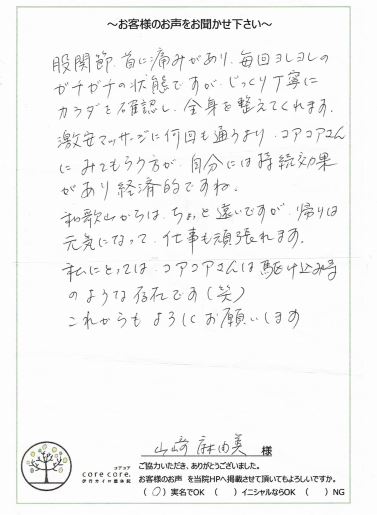 ～お客様のお声をお聞かせ下さい～
股関節、首に痛みがあり、毎回ヨレヨレの
ガチガチの状態ですが、じっくり丁寧に
カラダを確認し、全身を整えてくれます。
激安マッサージに何回も通うより、コアコアさん
にみてもらう方が、自分には持続効果
があり経済的ですね。
和歌山からは、ちょっと遠いですが、帰りは
元気になって、仕事も頑張れます。
私にとっては、コアコアさんは駆け込み寺
のような存在です(笑)
これからもよろしくお願いします
山﨑 麻由美 様
コアコア
core core.
伊丹カイロ整体院
ご協力いただき、ありがとうございました。
お客様のお声 を当院HPへ掲載させて頂いてもよろしいですか。
( ○ )実名でOK ( )イニシャルならOK ( )NG